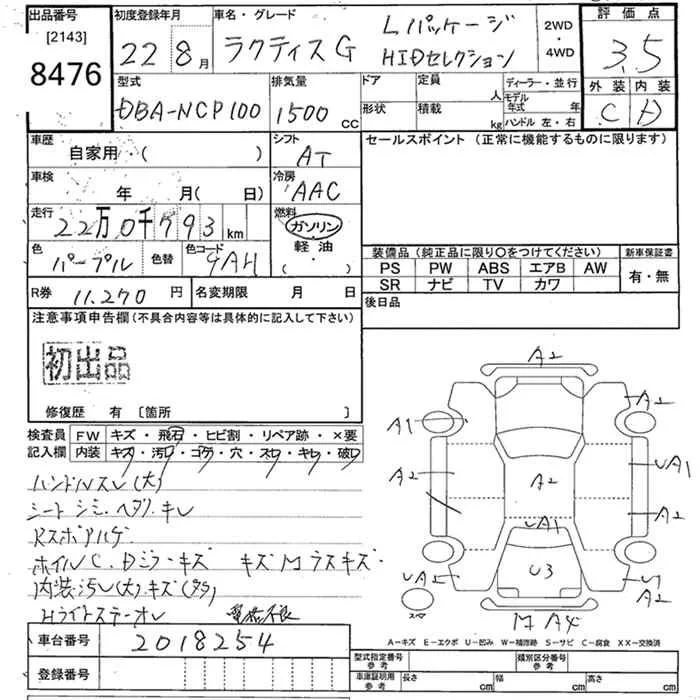 出品番号
[2143]
8476
初度登録年月
22 8月
車名・グレード
ラクティスG Lパッケージ
HIDセレクション
2WD
・
4WD
評価点
3.5
外装 内装
C D
型式
DBA-NCP100
排気量
1500 CC
ドア
形状
定員 人
積載 kg
ディーラー・並行
モデル年式 年
ハンドル 左・右
車歴
自家用・( )
シフト
AT
車検
年 月( 日)
冷房
AAC
走行
22万0千793 km
燃料
ガソリン
軽油
( ・ )
色
パープル
色替
色コード
9AH
R券 11.270 円
名変期限 月 日
セールスポイント(正常に機能するものに限ります)
装備品(純正品に限り○をつけてください)
新車保証書
PS PW ABS エアB AW
SR ナビ TV カワ
有・無
後日品
注意事項申告欄(不具合内容等は具体的に記入して下さい)
初出品
修復歴 有 [箇所 ]
検査員
記入欄
FW キズ・飛石・ヒビ割・リペア跡・×要
内装 キズ・汚レ・コゲ・穴・スレ・キレ・破レ
ハンドルスレ(大)
シート シミ.ヘタリ.キレ
ホイルC.Dミラーキズ
内装汚レ(大).キズ(多)
A2
A2
A1
A2
A2
UA1
A2
UA1
U3
A2
M A4
A-キズ E-エクボ U-凹み W-補修跡 S-サビ C-腐食 XX-交換済
車台番号 2018254
登録番号
型式指定番号
参考
類別区分番号
参考
車庫証明用
参考
長さ cm
幅 cm
高さ cm